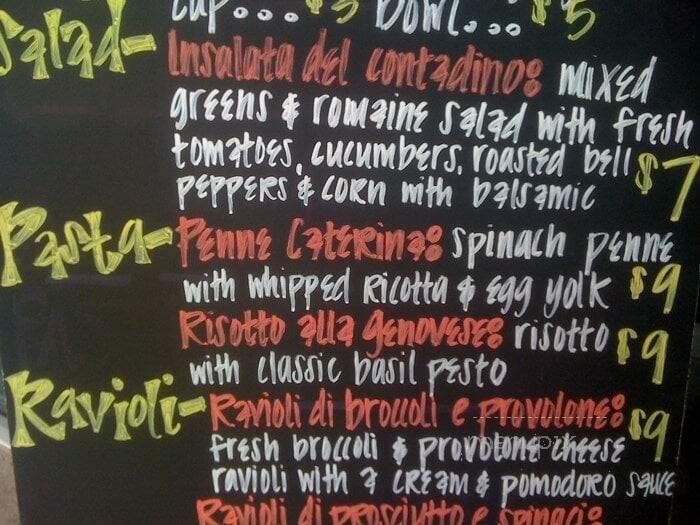 cup... $3 Bowl... $5
Salad- Insalata del contadino: mixed
greens & romaine salad with fresh
tomatoes, cucumbers, roasted bell
peppers & corn with balsamic $7
Pasta- Penne Caterina: spinach penne
with whipped ricotta & egg yolk $9
Risotto alla Genovese: risotto $9
with classic basil pesto
Ravioli- Ravioli di broccoli e provolone: $9
fresh broccoli & provolone cheese
ravioli with a cream & pomodoro sauce
Ravioli di prosciutto e spinaci: